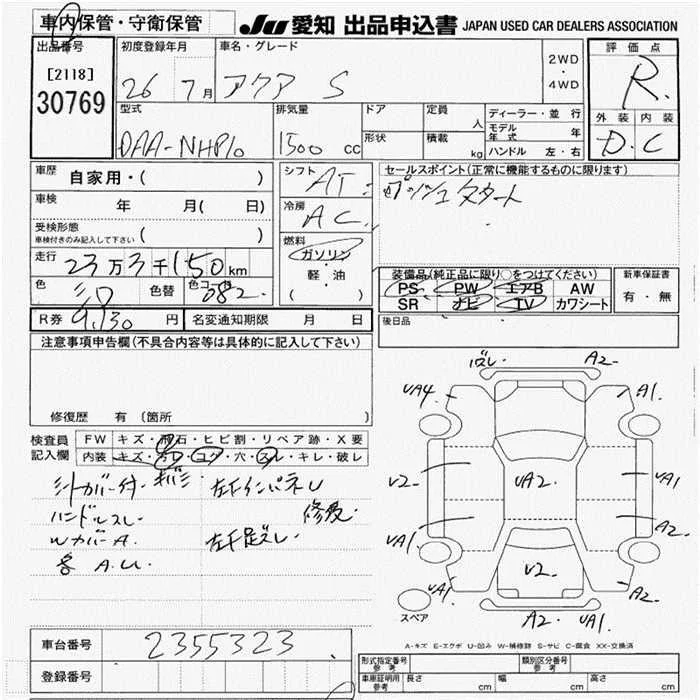 車内保管・守衛保管
JU 愛知 出品申込書 JAPAN USED CAR DEALERS ASSOCIATION
出品番号
[2118]
30769
初度登録年月
26 7月
車名・グレード
アクア S
2WD
・
4WD
評価点
R
外装 内装
D. C
型式
DAA-NHP10
排気量
1500 cc
ドア
形状
定員
人
積載
kg
ディーラー・並行
モデル年式 年
ハンドル 左・右
車歴 自家用・( )
車検 年 月( 日)
受検形態
車検付きのみ記入して下さい ( )
走行 23万3千150km
色 シロ 色替 色コード 082
R券 9,130 円 名変通知期限 月 日
シフト AT
冷房 AC
燃料
ガソリン
・
軽・油
( )
セールスポイント(正常に機能するものに限ります)
プッシュスタート
装備品(純正品に限り○をつけてください)
PS PW エアB AW
SR ナビ TV カワシート
新車保証書
有・無
後日品
注意事項申告欄(不具合内容等は具体的に記入して下さい)
修復歴 有 (箇所 )
検査員記入欄
FW キズ・飛石・ヒビ割・リペア跡・X要
内装 キズ・汚レ・コゲ・穴・スレ・キレ・破レ
シートカバー付
左インパネU
ハンドルスレ
修復
Wカバー A.
左足ズレ
各 A.U
車台番号 2355323
登録番号
A2
UA4
A1
V2
UA2
UA1
UA1
A2
V2
UA1
A2
A2 UA1
スペア
A-キズ E-エクボ U-凹み W-補修跡 S-サビ C-腐食 XX-交換済
形式指定番号 参考
類別区分番号 参考
車庫証明用 参考 長さ cm 幅 cm 高さ cm